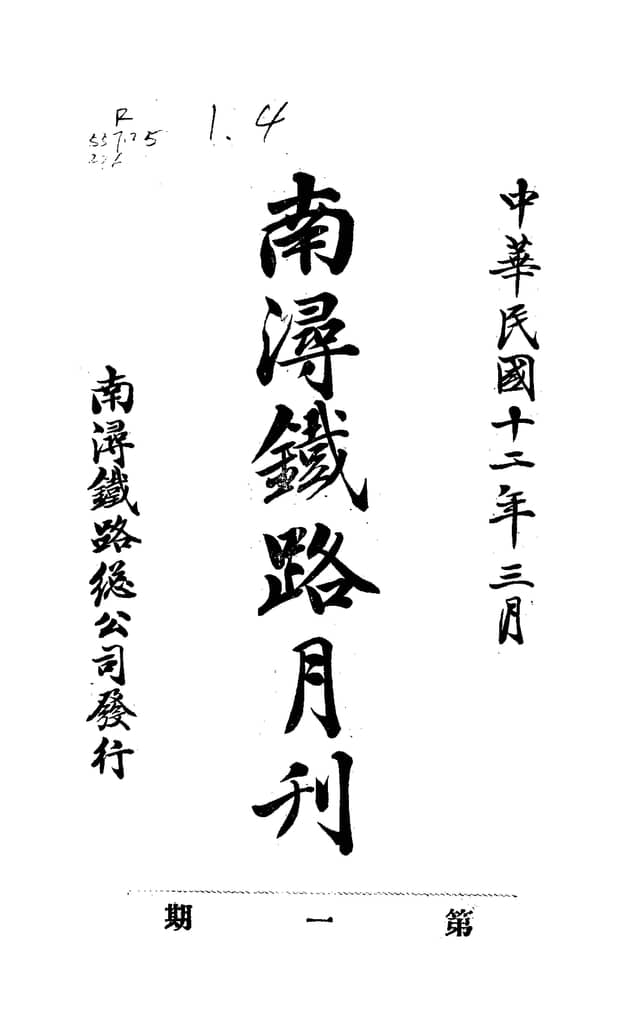 中華民國十二年三月
南潯鐵路月刊
南潯鐵路總公司發行
第一期
R
1.4